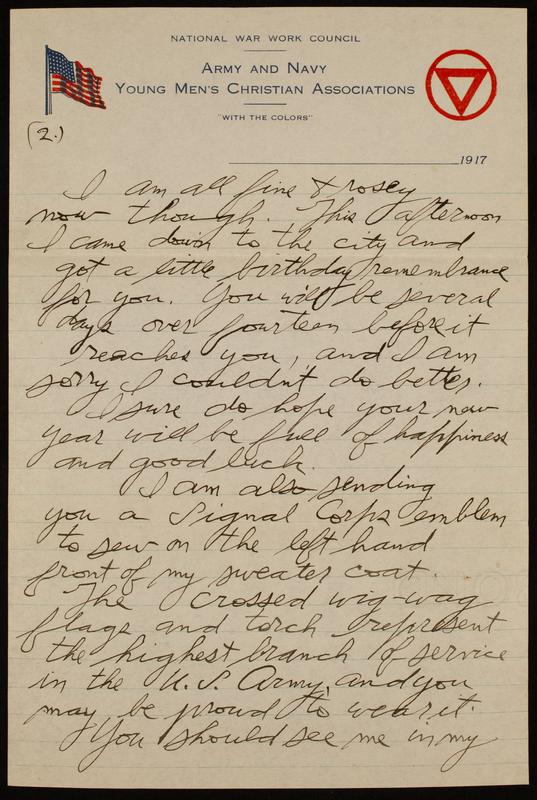 NATIONAL WAR WORK COUNCIL
ARMY AND NAVY
YOUNG MEN'S CHRISTIAN ASSOCIATIONS
"WITH THE COLORS"
(2.)
1917
I am all fine & rosey
now though. This afternoon
I came down to the city and
got a little birthday remembrance
for you. You will be several
days over fourteen before it
reaches you, and I am
sorry I couldn't do better.
I sure do hope your new
year will be full of happiness
and good luck.
I am also sending
you a Signal Corps emblem
to sew on the left hand
front of my sweater coat.
The crossed wig-wag
flags and torch represent
the highest branch of service
in the U.S. Army, and you
may be proud to wear it.
You should see me in my